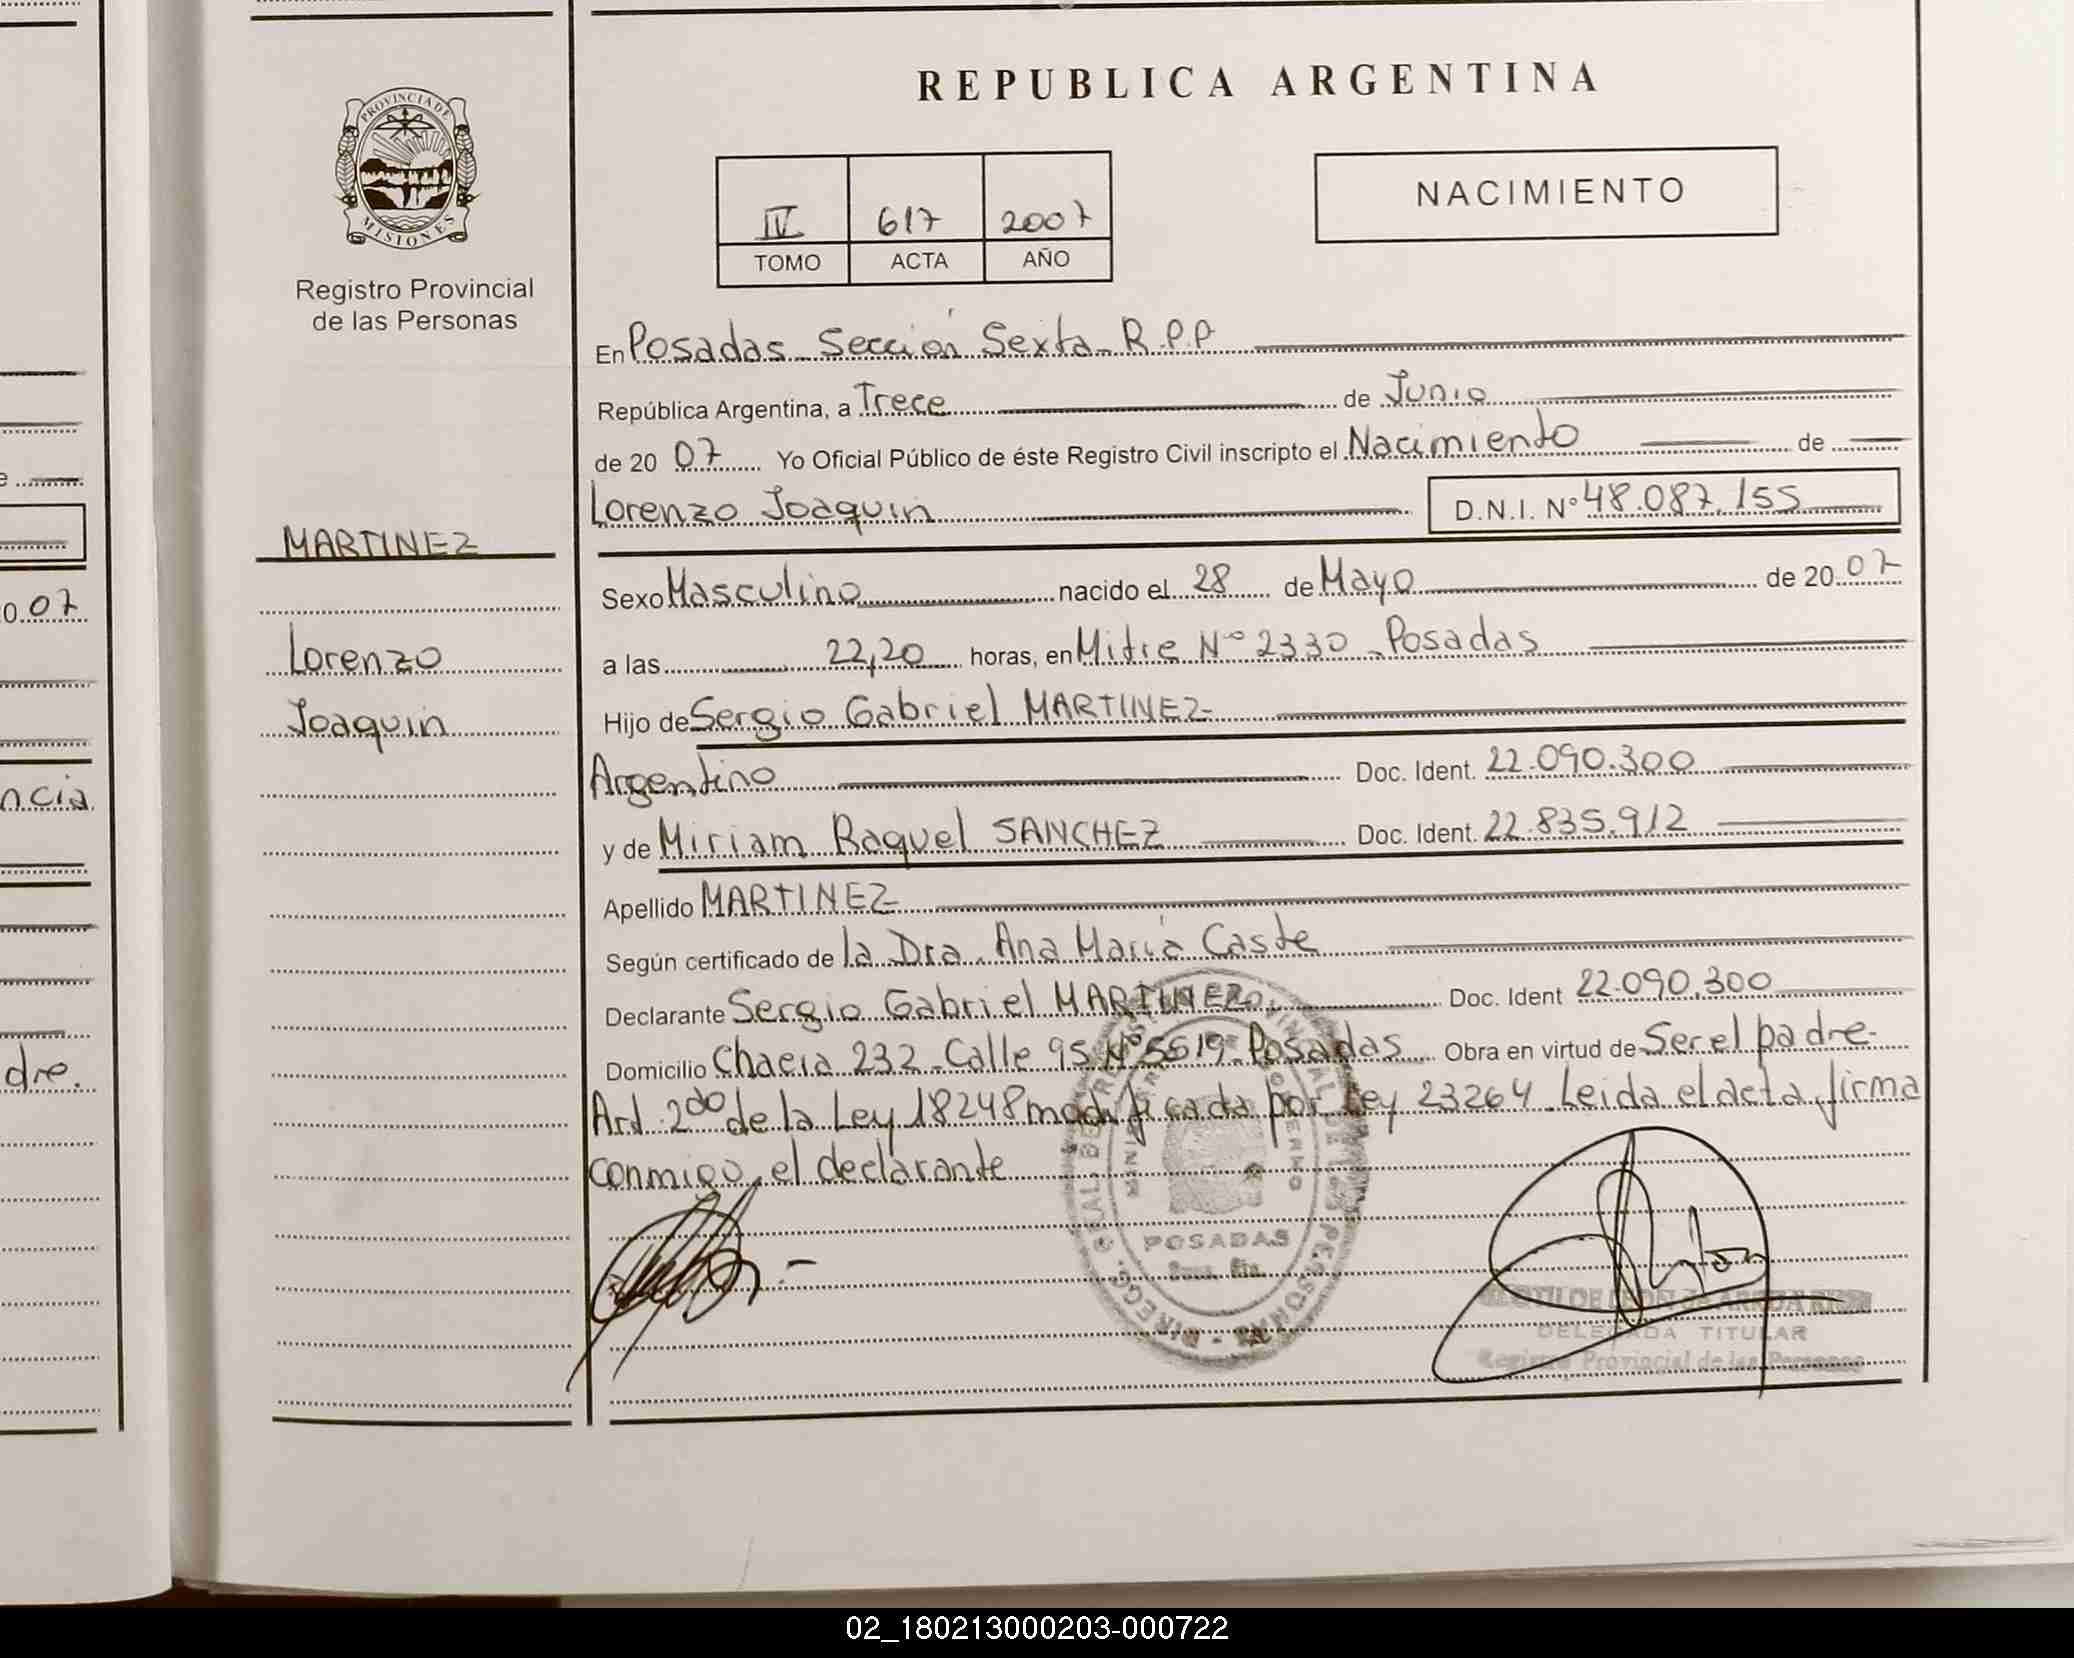 REPUBLICA ARGENTINA
PROVINCIA DE MISIONES
Registro Provincial
de las Personas
NACIMIENTO
IV 617 2007
TOMO ACTA AÑO
En Posadas Sección Sexta R.P.P
República Argentina, a Trece de Junio
de 20 07 Yo Oficial Público de éste Registro Civil inscripto el Nacimiento de
Lorenzo Joaquin D.N.I. Nº 48.087.155
MARTINEZ
Lorenzo
Joaquin
Sexo Masculino nacido el 28 de Mayo de 20 07
a las 22,20 horas, en Mitre Nº 2330 Posadas
Hijo de Sergio Gabriel MARTINEZ
Argentino Doc. Ident. 22.090.300
y de Miriam Raquel SANCHEZ Doc. Ident. 22.835.912
Apellido MARTINEZ
Según certificado de la Dra. Ana María Caste
Declarante Sergio Gabriel MARTINEZ Doc. Ident 22.090.300
Domicilio Chacra 232 Calle 95 Nº 5519 Posadas Obra en virtud de Ser el padre
Art 2do de la Ley 18248 modificada por Ley 23264 Leida el acta, firma
conmigo, el declarante
POSADAS
DELEGADA TITULAR
Registro Provincial de las Personas
07
ncia
dre.
02_180213000203-000722